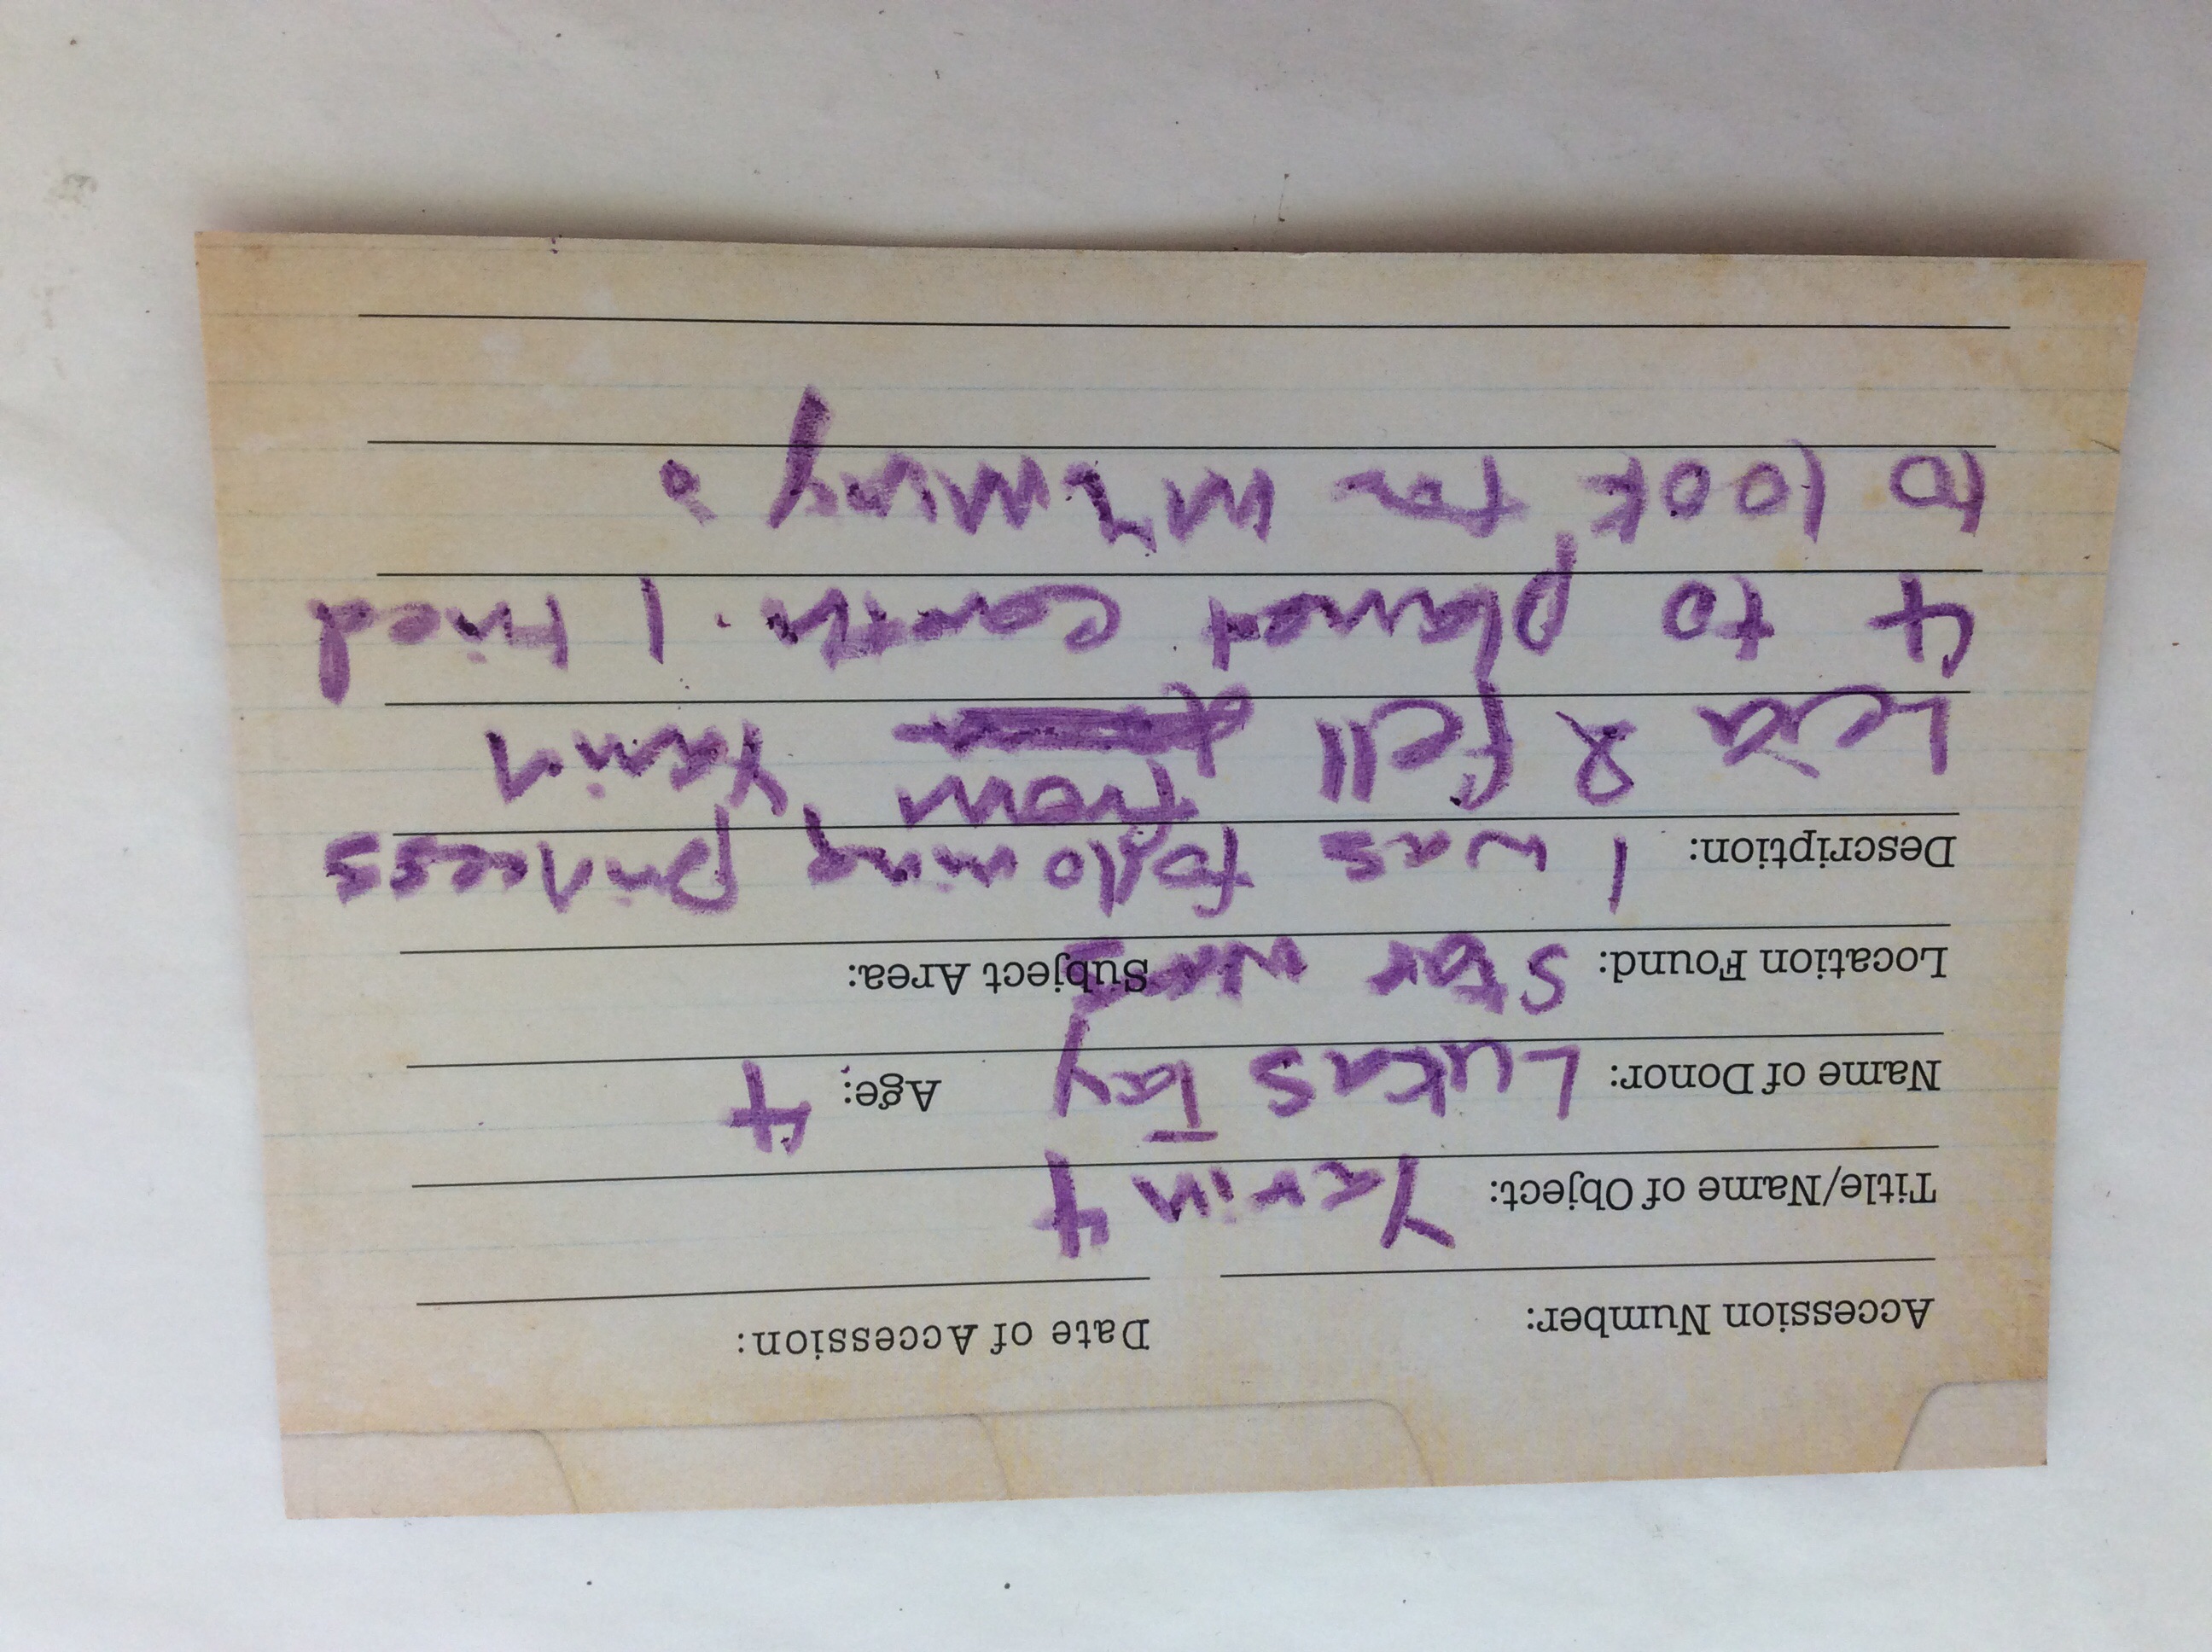 Accession Number: Date of Accession:
Title/Name of Object: Yavin 4
Name of Donor: Lukas Tay Age: 4
Location Found: Star wars Subject Area:
Description: I was following princess
Leia & fell from Yavin
4 to planet earth. I tried
to look for mummy.